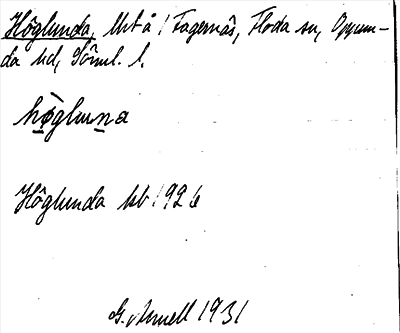 Höglunda, lht å 1 Fagernäs, Floda sn, Oppun-
da hd, Söml. l.
hö̀gluna
Höglunda kb 1926
G. Arnell 1931